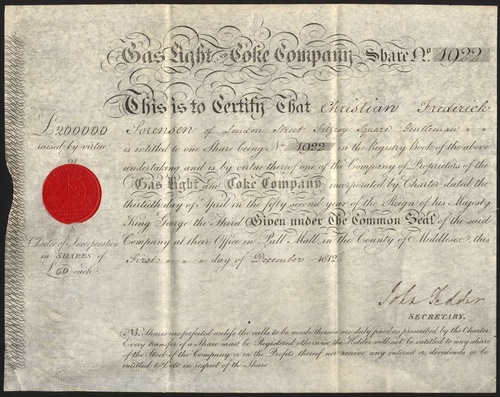 Gas Light and Coke Company Share No. 1922
This is to Certify That Christian Frederick
Sorensen of London Street Fitzroy Square Gentleman
is intitled to one Share being No. 1922 in the Registry Book of the above
undertaking and is by virtue thereof one of the Company of Proprietors of the
Gas Light and Coke Company incorporated by Charter dated the
thirtieth day of April in the fifty second year of the Reign of his Majesty
King George the Third Given under the Common Seal of the said
Company at their Office in Pall Mall in the County of Middlesex this
First day of December 1812
£200000
raised by virtue
of
Charter of Incorporation
in SHARES of
£50 each
John Pedder
SECRETARY.
NB. Shares are forfeited unless the calls to be made thereon are duly paid as prescribed by the Charter
Every transfer of a Share must be Registered otherwise the Holder will not be intitled to any share
of the Stock of the Company or in the Profits thereof nor receive any interest or dividends or be
intitled to Vote in respect of the Share